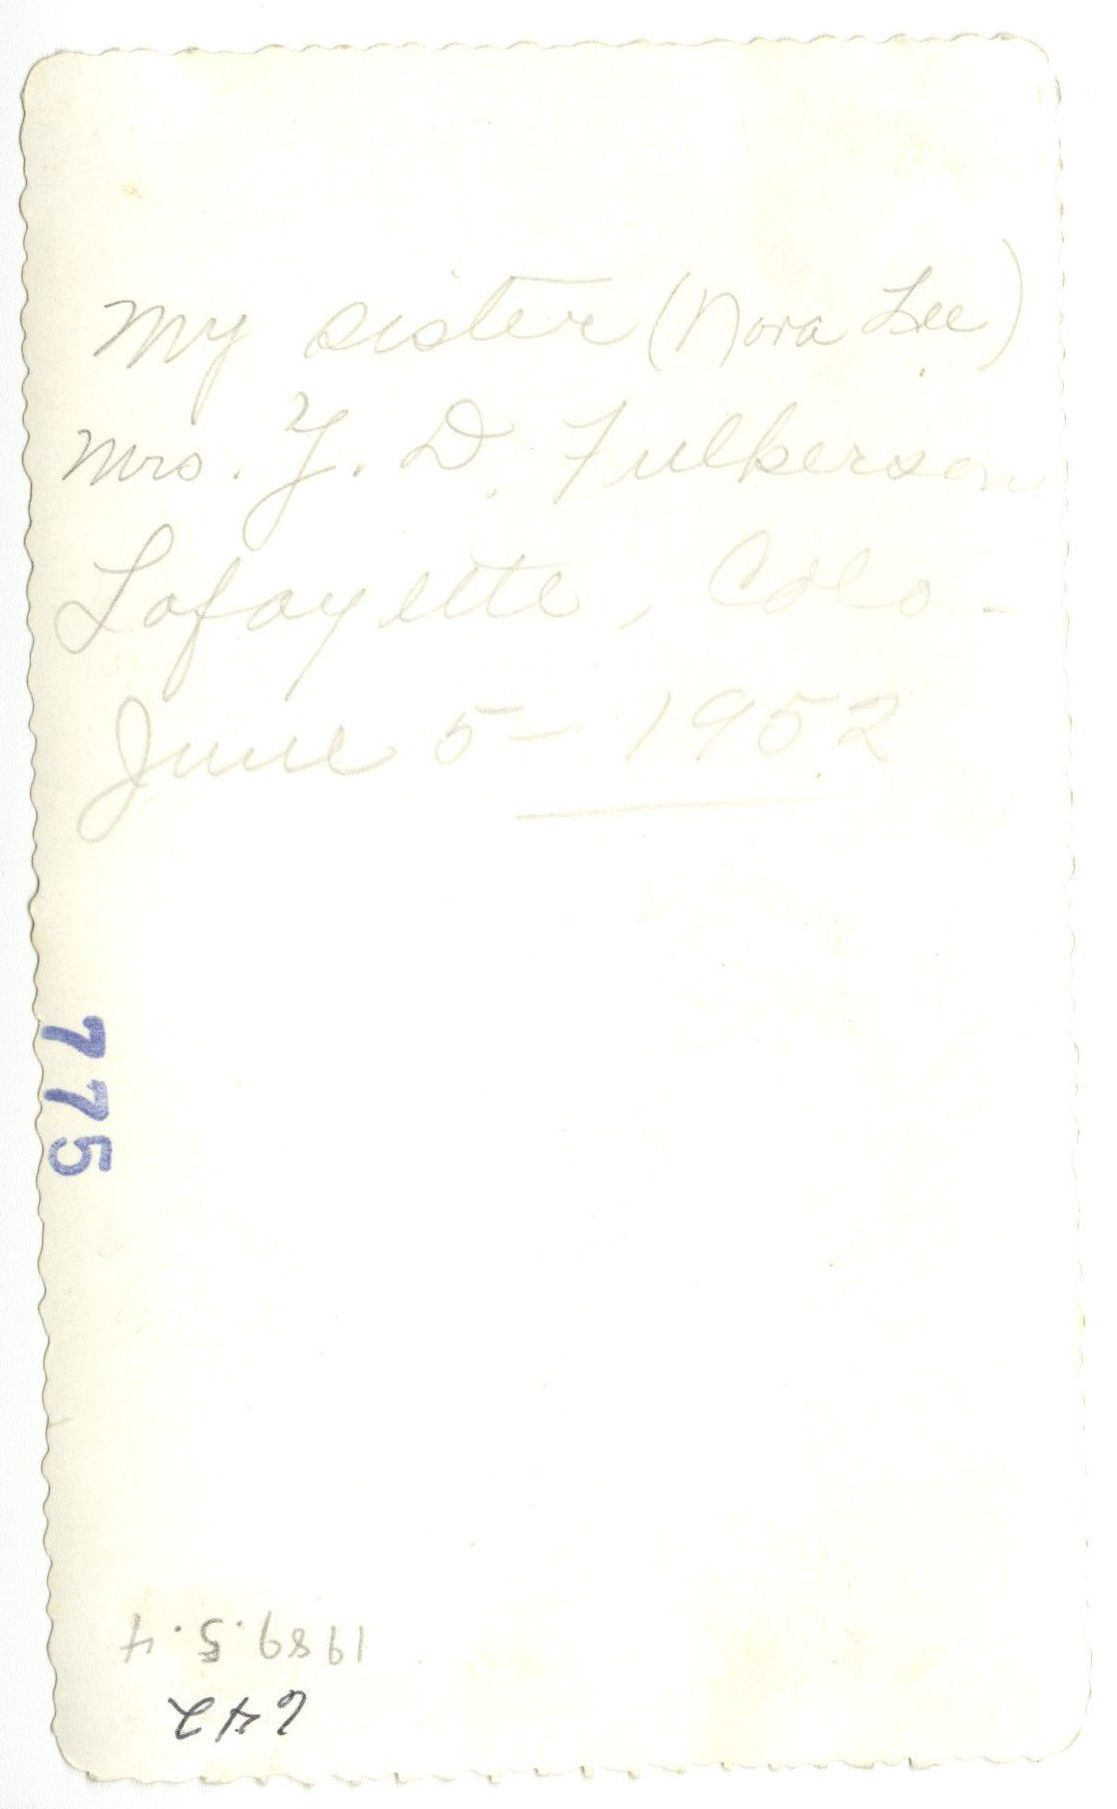 My sister (Nora Lee)
Mrs. Y. D. Fulkerson
Lafayette, Colo-
June 5- 1952
775
1989.5.4